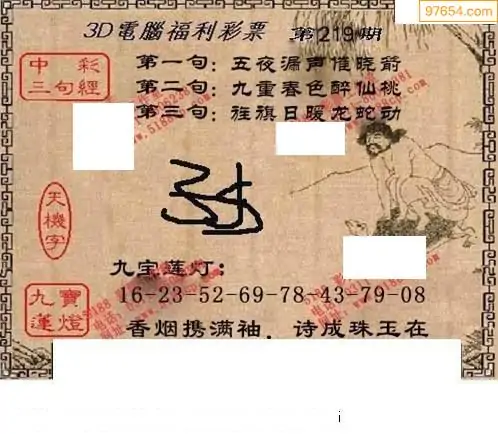 97654.com
3D電腦福利彩票 第219期
中彩
三句經
第一句：五夜漏声催晓箭
第二句：九重春色醉仙桃
第三句：旌旗日暖龙蛇动
天機字
九宝莲灯：
16-23-52-69-78-43-79-08
九寶
蓮燈
香烟携满袖．诗成珠玉在
i